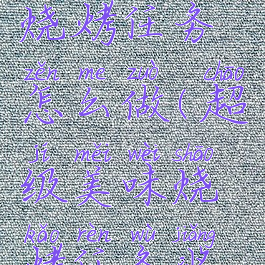 烧烤任务
zěn me zuò chāo
怎么做(超
jí měi wèi shāo
级美味烧
kǎo rèn wù liáng